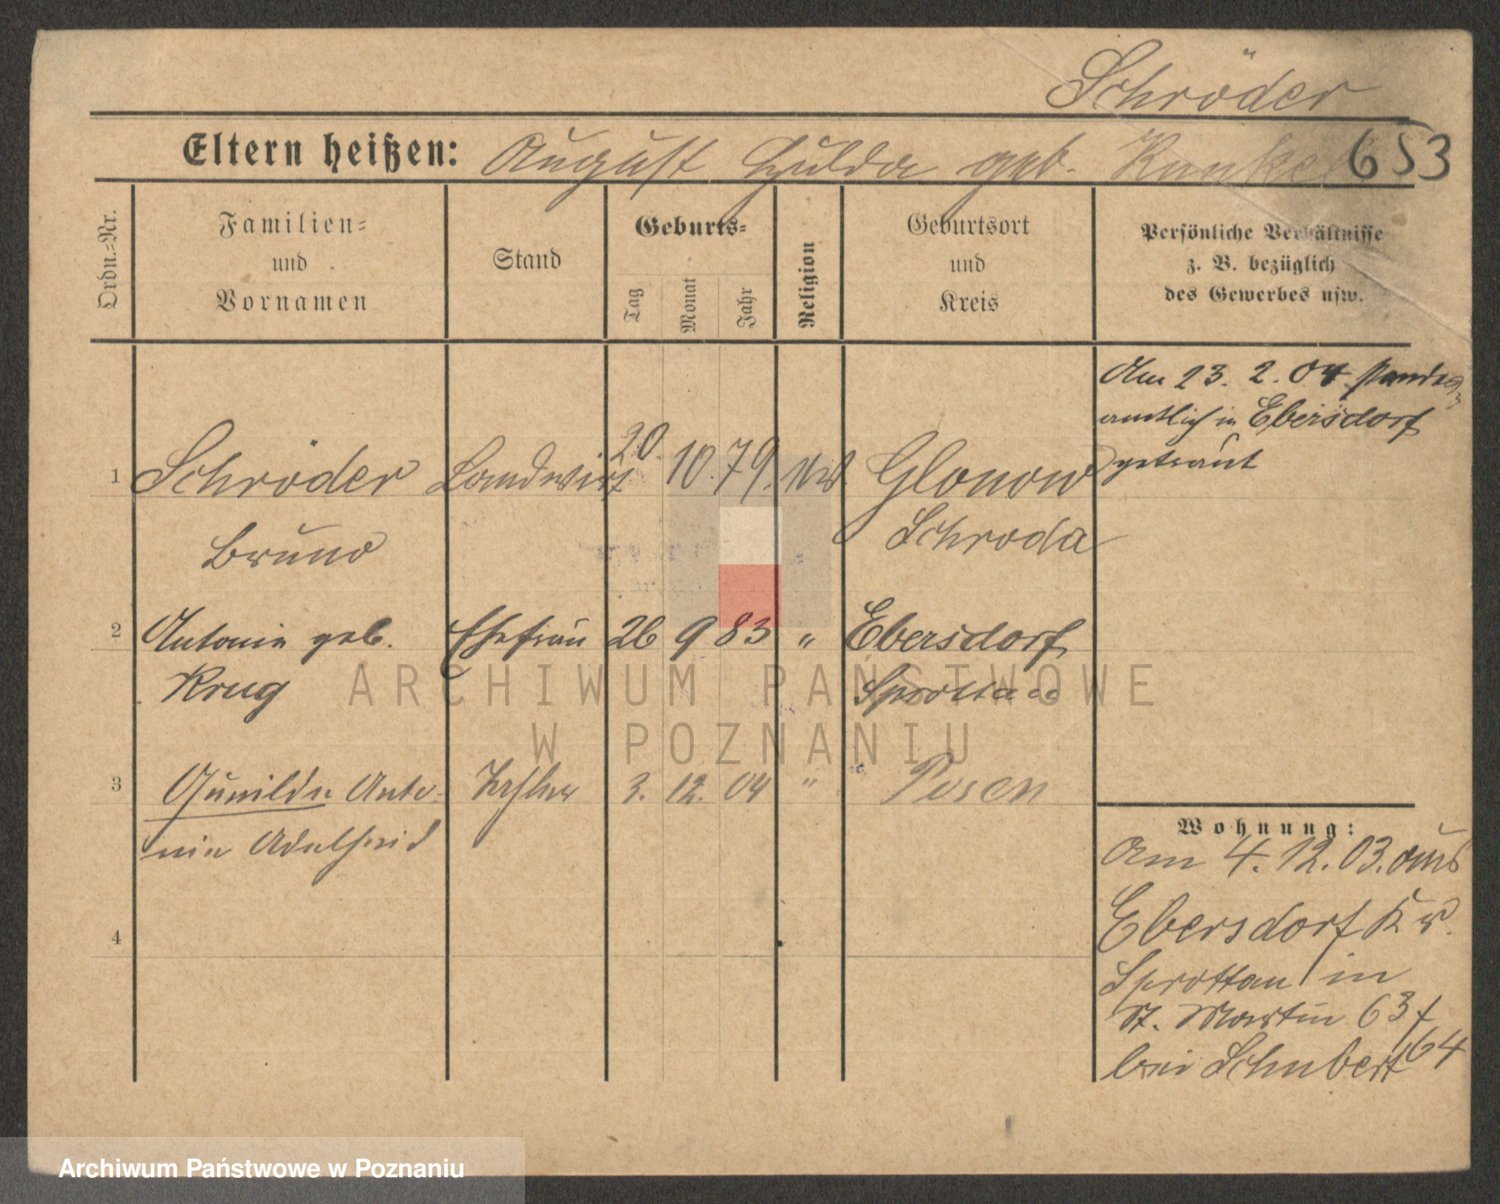 Schröder
Eltern heißen: August Hulda geb. Kunkel
653
Ordn.-Nr.
Familien-
und
Vornamen
Stand
Geburts-
Tag
Monat
Jahr
Religion
Geburtsort
und
Kreis
Persönliche Verhältnisse
z. B. bezüglich
des Gewerbes usw.
Am 23. 2. 04 standes
amtlich in Ebersdorf
getraut
1 Schröder Landwirt 20. 10. 79.
Glonow
Bruno
Schroda
2 Antonie geb. Ehefrau 26 9 83 " Ebersdorf
Krug
Sprottau
3 Gunilde Anto- Tochter 3. 12. 04 " Posen
nie Adelheid
4
Wohnung:
Am 4. 12. 03. aus
Ebersdorf Kr.
Sprottau in
St. Martin 63/
64
bei Schubert
ARCHIWUM PAŃSTWOWE
W POZNANIU
Archiwum Państwowe w Poznaniu